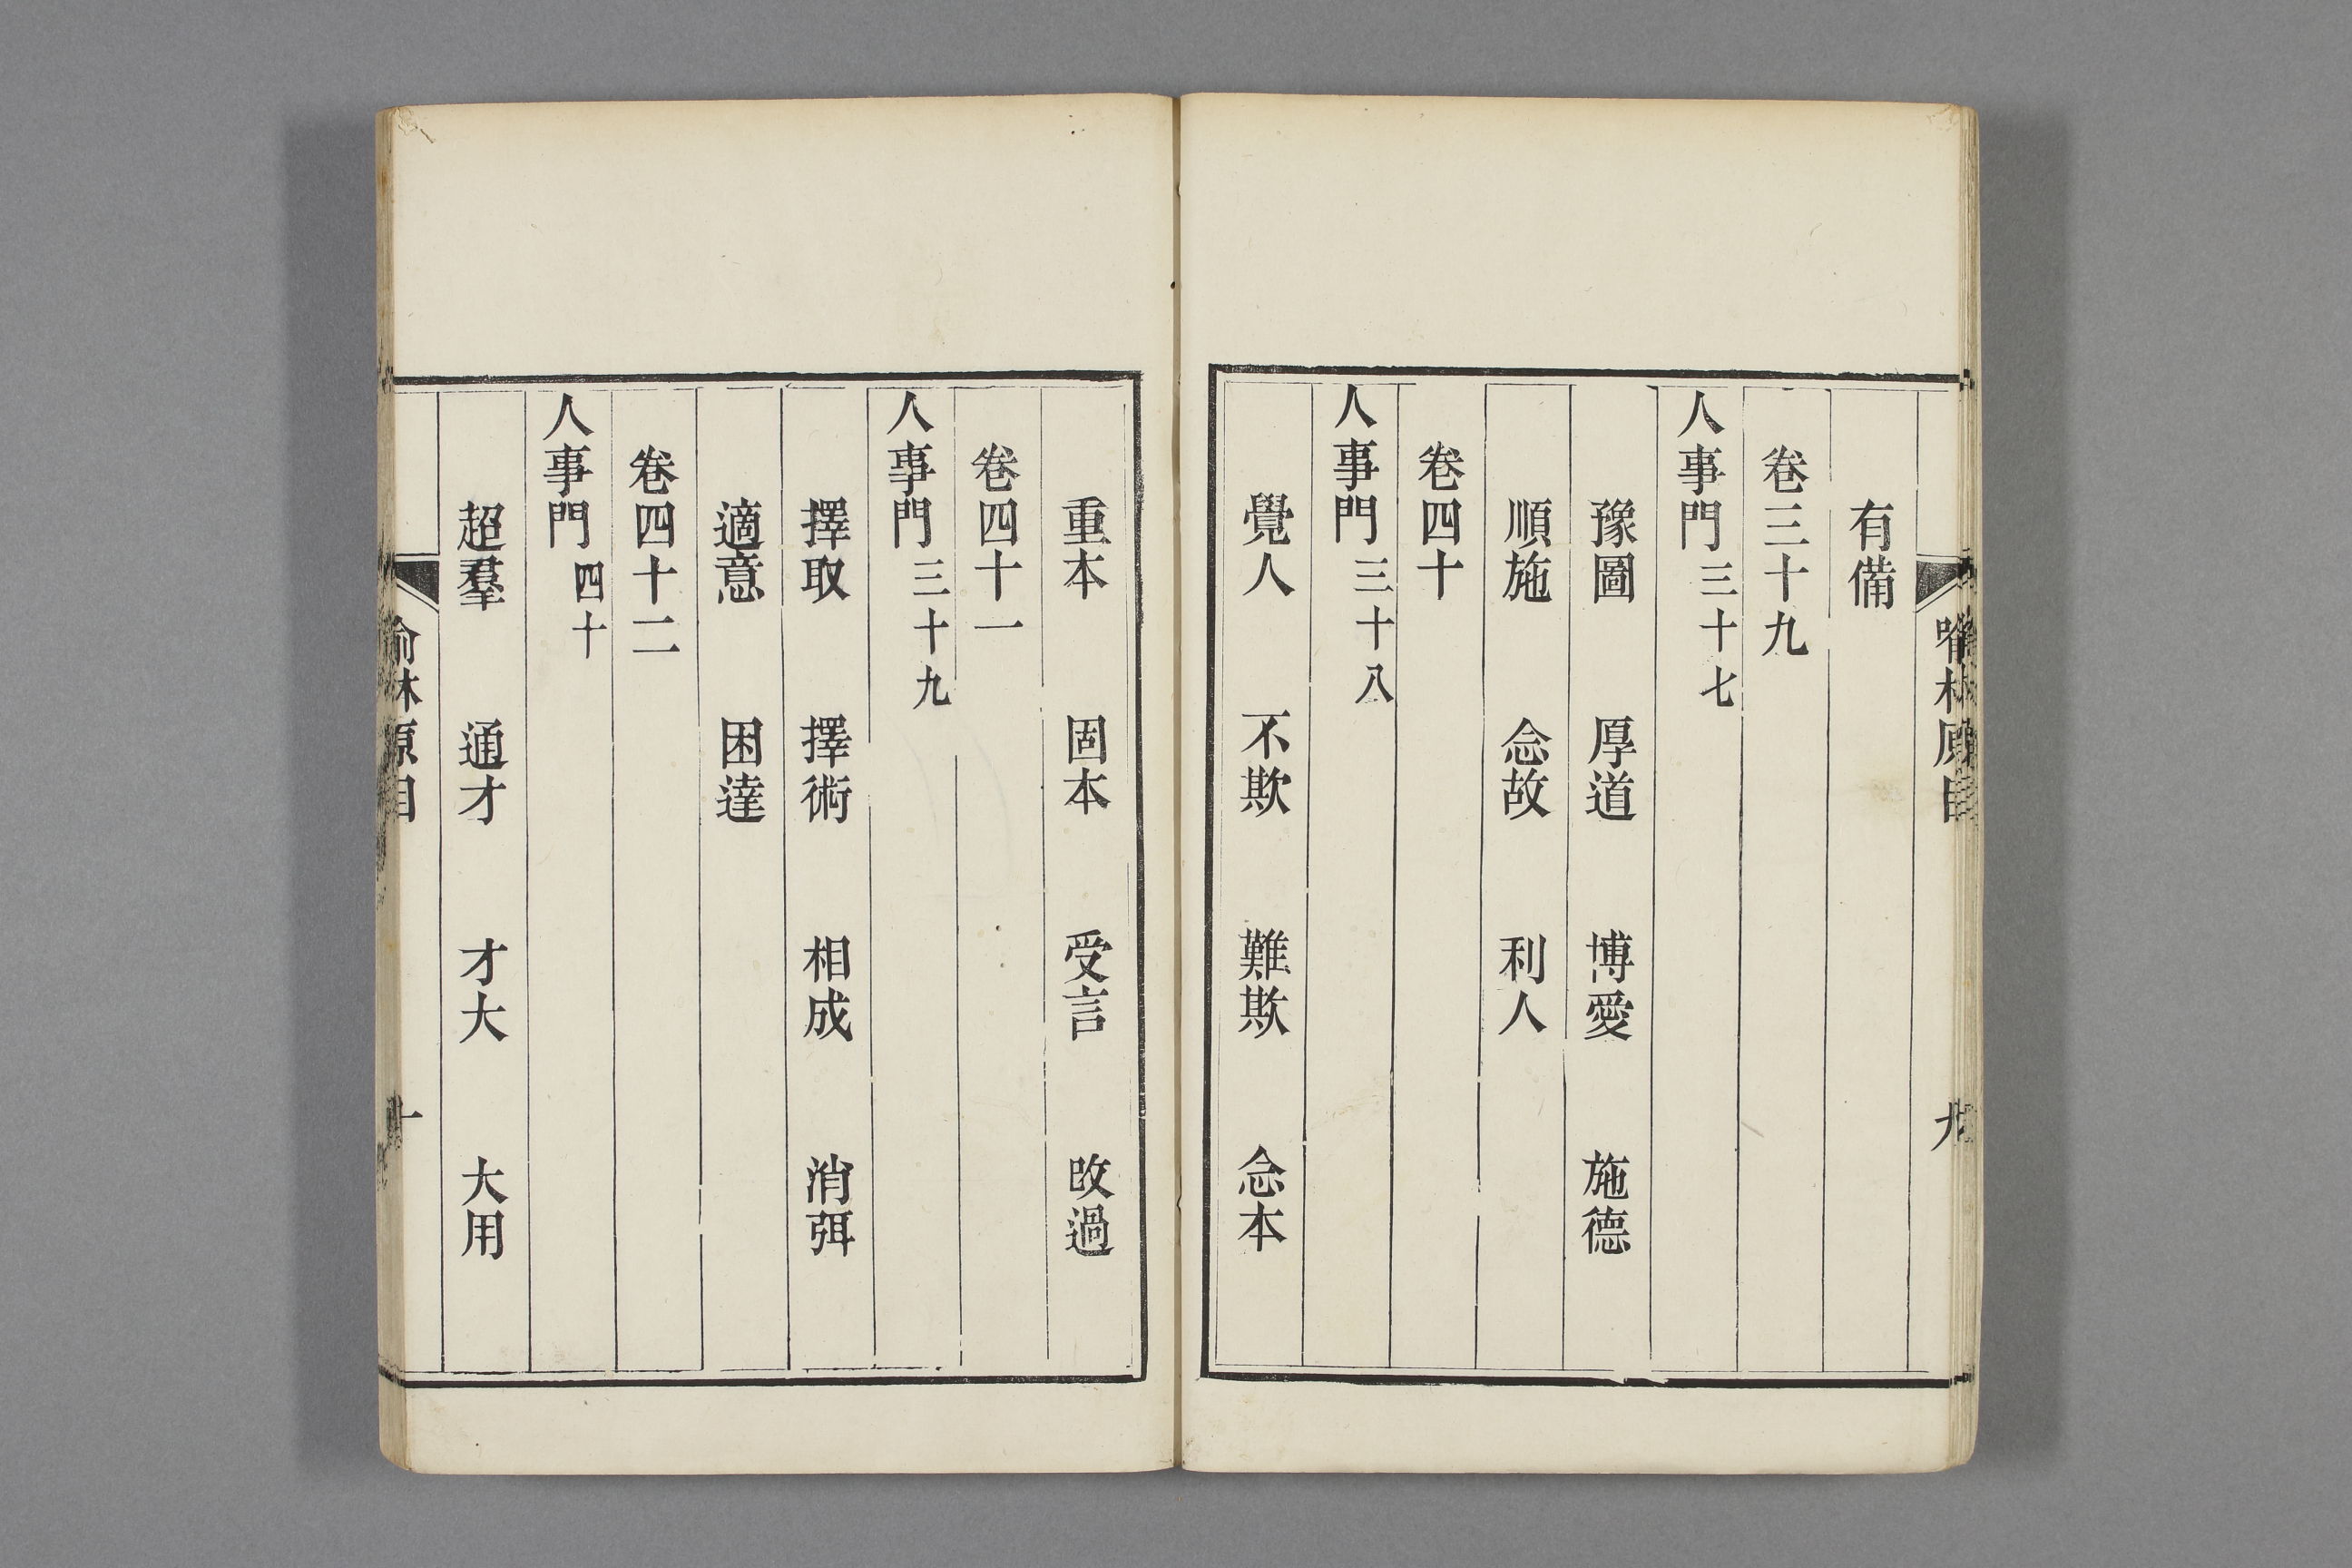 有備
卷三十九
人事門三十七
豫圖 厚道 博愛 施德
順施 念故 利人
卷四十
人事門三十八
覺人 不欺 難欺 念本
重本 固本 受言 改過
卷四十一
人事門三十九
擇取 擇術 相成 消弭
適意 困達
卷四十二
人事門四十
超羣 通才 才大 大用
喻林原目
十